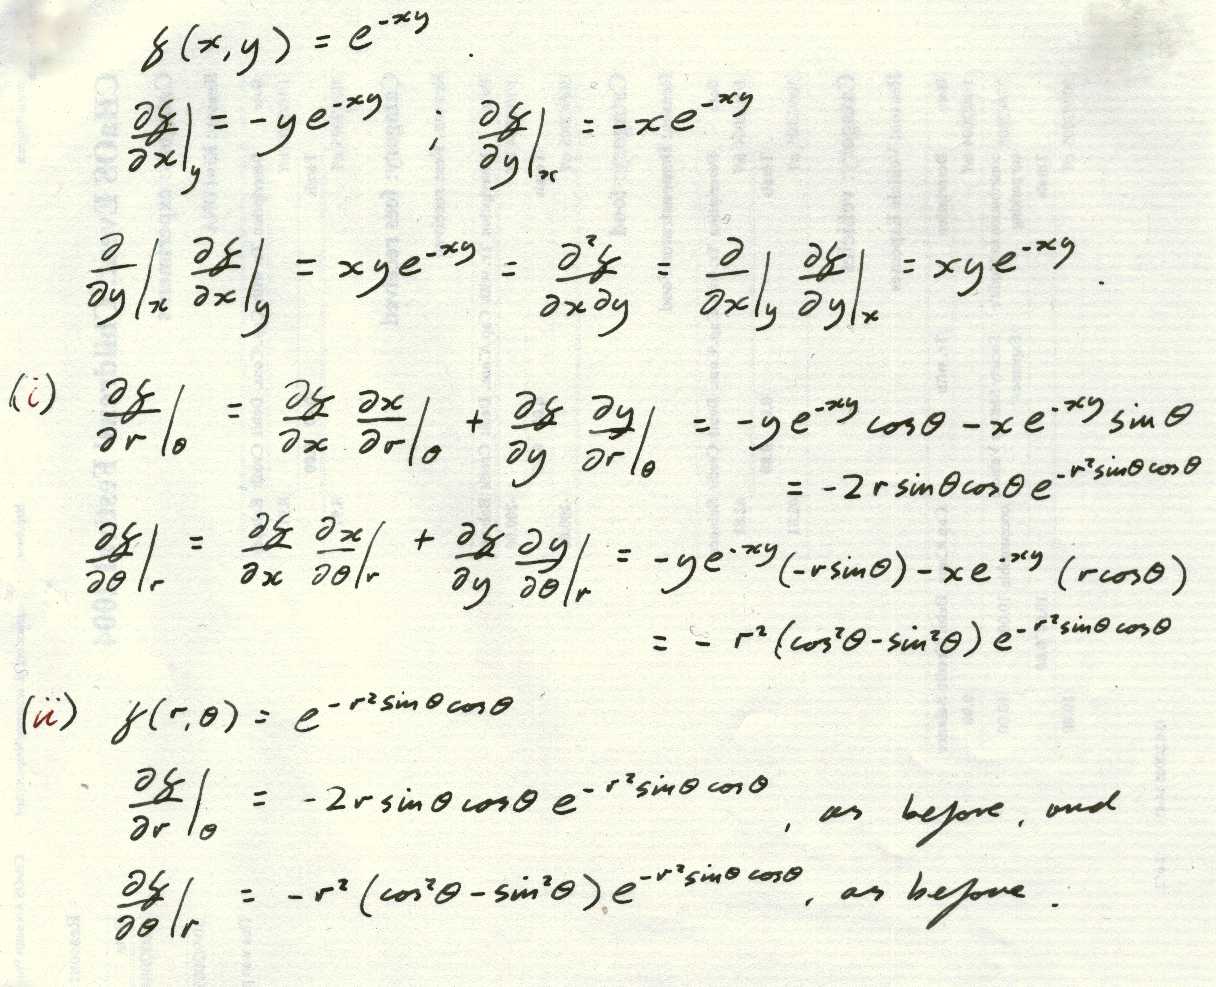 f(x,y) = e^{-xy}.
∂f/∂x|_y = -ye^{-xy} ; ∂f/∂y|_x = -xe^{-xy}
∂/∂y|_x ∂f/∂x|_y = xye^{-xy} = ∂²f/∂x∂y = ∂/∂x|_y ∂f/∂y|_x = xye^{-xy}.
(i) ∂f/∂r|_θ = ∂f/∂x ∂x/∂r|_θ + ∂f/∂y ∂y/∂r|_θ = -ye^{-xy} cosθ - xe^{-xy} sinθ
= -2r sinθ cosθ e^{-r² sinθ cosθ}
∂f/∂θ|_r = ∂f/∂x ∂x/∂θ|_r + ∂f/∂y ∂y/∂θ|_r = -ye^{-xy}(-r sinθ) - xe^{-xy} (r cosθ)
= - r² (cos²θ - sin²θ) e^{-r² sinθ cosθ}
(ii) f(r,θ) = e^{-r² sinθ cosθ}
∂f/∂r|_θ = -2r sinθ cosθ e^{-r² sinθ cosθ}, as before, and
∂f/∂θ|_r = -r² (cos²θ - sin²θ) e^{-r² sinθ cosθ}, as before.